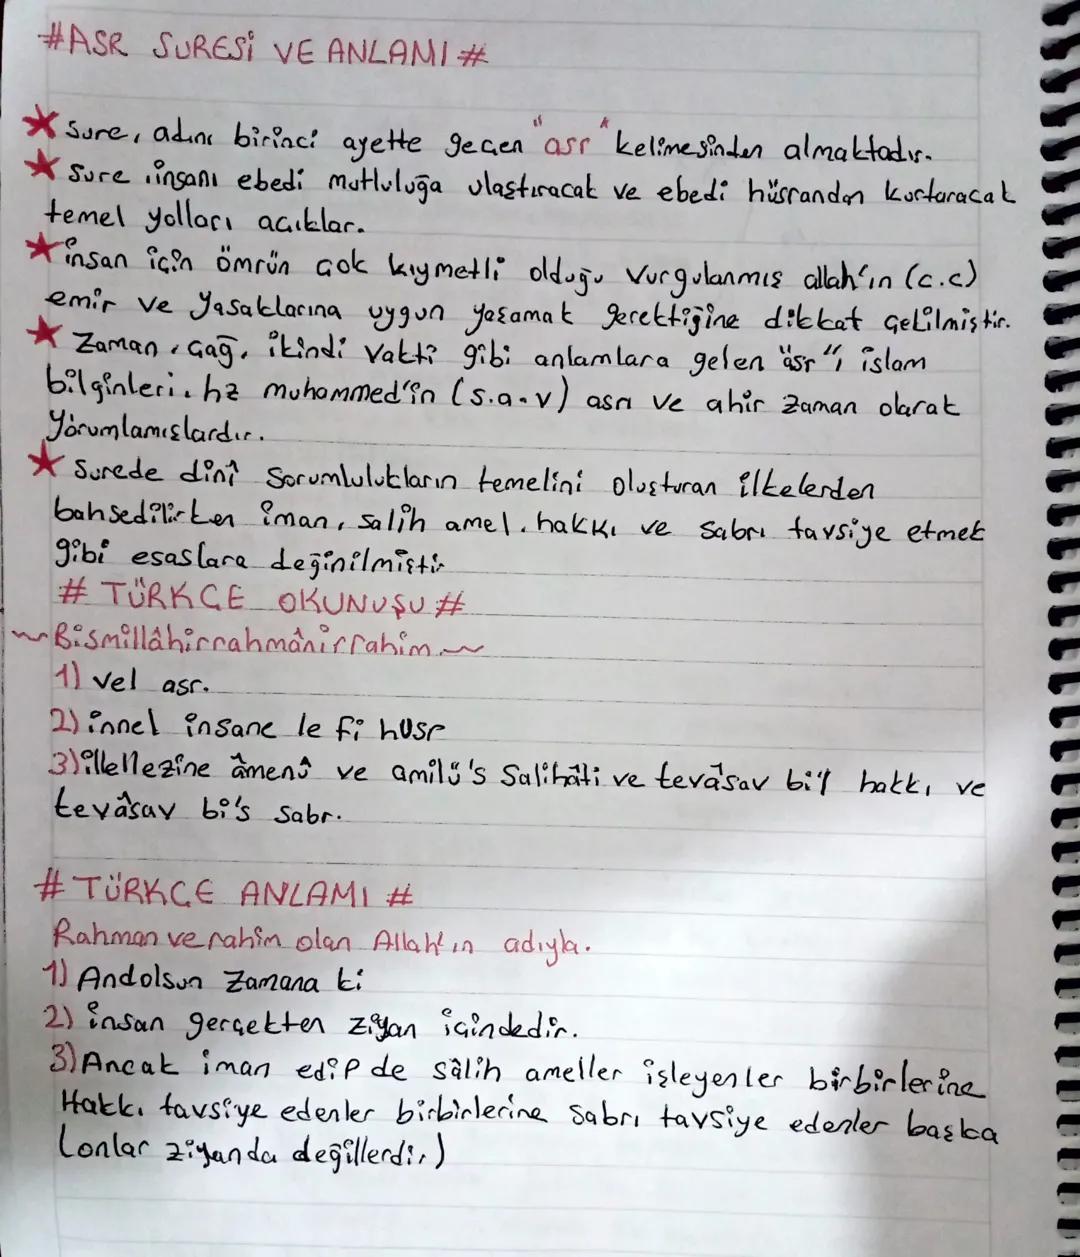 #ASR SURESİ VE ANLAMI#
★ Sure, adını birinci ayette geçen "asr" kelimesinden almaktadır.
★ Sure, insanı ebedi mutluluğa ulaştıracak ve ebedi hüsrandan kurtaracak
temel yolları açıklar.
★ insan için ömrün çok kıymetli olduğu vurgulanmış allah'ın (c.c)
emir ve yasaklarına uygun yaşamak gerektiğine dikkat çekilmiştir.
★ Zaman, çağ, ikindi vakti gibi anlamlara gelen "asr"ı islam
bilginleri, hz muhammed'in (s.a.v) asrı ve ahir zaman olarak
Yorumlamışlardır.
★ Surede dinî sorumlulukların temelini oluşturan ilkelerden
bahsedilirken iman, salih amel, hakkı ve sabrı tavsiye etmek
gibi esaslara değinilmiştir
# TÜRKÇE OKUNUŞU #
~Bismillâhirrahmânirrahim~
1) vel asr.
2) innel insane le fi husr
3) illellezine âmenû ve amilû's Salihâti ve tevâsav bi'l hakkı ve
tevâsav bi's sabr.
# TÜRKÇE ANLAMI #
Rahman ve rahim olan Allah'ın adıyla.
1) Andolsun Zamana ki
2) insan gerçekten ziyan içindedir.
3) Ancak iman edip de sâlih ameller işleyenler birbirlerine
Hakkı tavsiye edenler birbirlerine sabrı tavsiye edenler başka
(onlar ziyanda değillerdir)